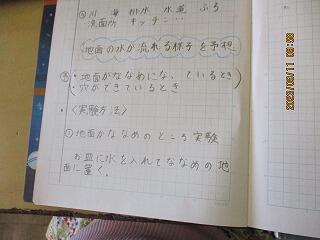 ③川 海 排水 水道 ふろ
洗面所 キッチン…
地面の水が流れる様子を予想
・地面がななめになっているとき
・穴ができているとき
・〈実験方法〉
①地面がななめのところ実験
お皿に水を入れてななめの地
面に置く。
2023/09/11